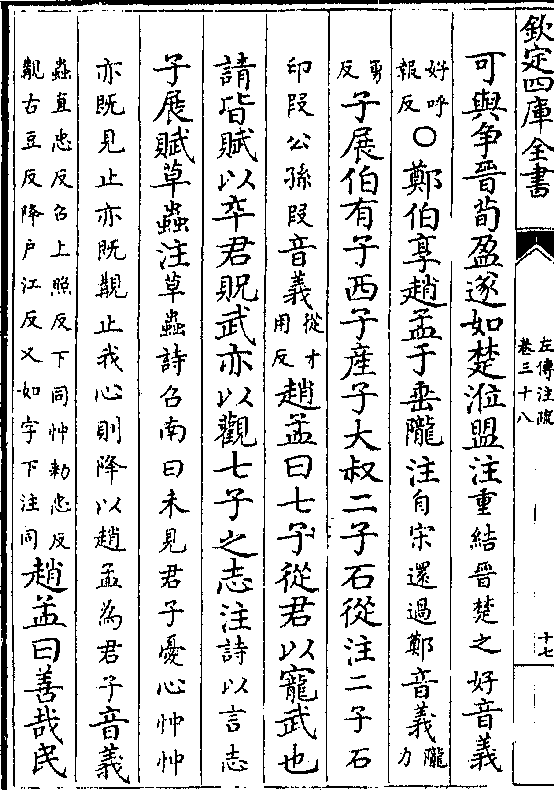 欽定四庫全書
左傳注疏
卷三十八
十七
可與爭晉荀盈遂如楚涖盟注重結晉楚之好音義
好呼
報反○鄭伯享趙孟于垂隴注自宋還過鄭音義隴
力
勇
反子展伯有子西子產子大叔二子石從注二子石
印段公孫段音義從才
用反趙孟曰七子從君以寵武也
請皆賦以卒君貺武亦以觀七子之志注詩以言志
子展賦草蟲注草蟲詩召南曰未見君子憂心忡忡
亦既見止亦既覯止我心則降以趙孟為君子音義
蟲直忠反召上照反下同忡勅忠反
覯古豆反降户江反又如字下注同趙孟曰善哉民